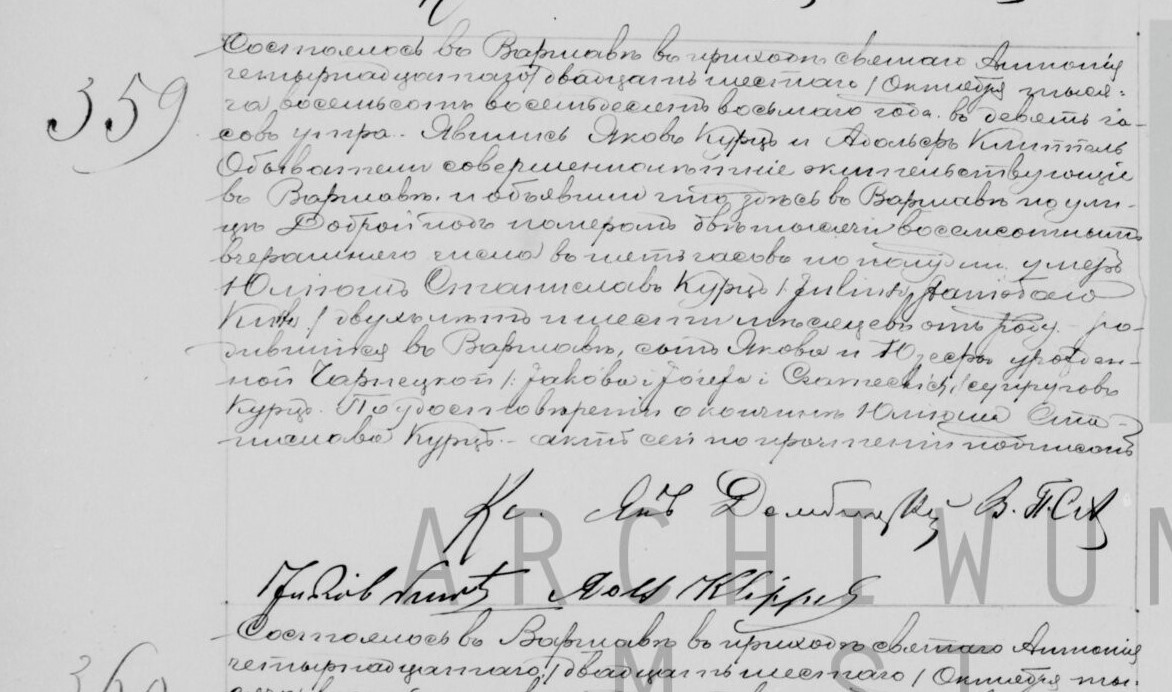 359
Состоялось въ Варшавѣ въ приходѣ святаго Антонія
четырнадцатаго / двадцать шестаго / Октября тыся-
ча восемьсотъ восемьдесятъ восьмаго года въ девять ча-
совъ утра. Явились Яковъ Курцъ и Адольфъ Клиппель
Обыватели совершеннолѣтніе жительствующіе
въ Варшавѣ и объявили что здѣсь въ Варшавѣ по ули-
цѣ Доброй подъ номеромъ двѣ тысячи восемсотнымъ
вчерашняго числа въ пять часовъ по полудни умеръ
Юліюшъ Станиславъ Курцъ /: Juliusz Stanisław
двухъ лѣтъ и шести мѣсяцевъ отъ роду ро-
дившійся въ Варшавѣ, сынъ Якова и Юзефы урожден-
ной Чарнецкой /: Jakóba i Józefa i Czarneckich :/ супруговъ
Курцъ. По удостовѣреніи о кончинѣ Юліюша Ста-
нислава Курцъ. - актъ сей по прочтеніи подписанъ
Кс. Янъ В.П.С.А
Jakób Kurtz Adolf Klippel
ARCHIWUM
Состоялось въ Варшавѣ въ приходѣ святаго Антонія
360
четырнадцатаго / двадцать шестаго / Октября ты-